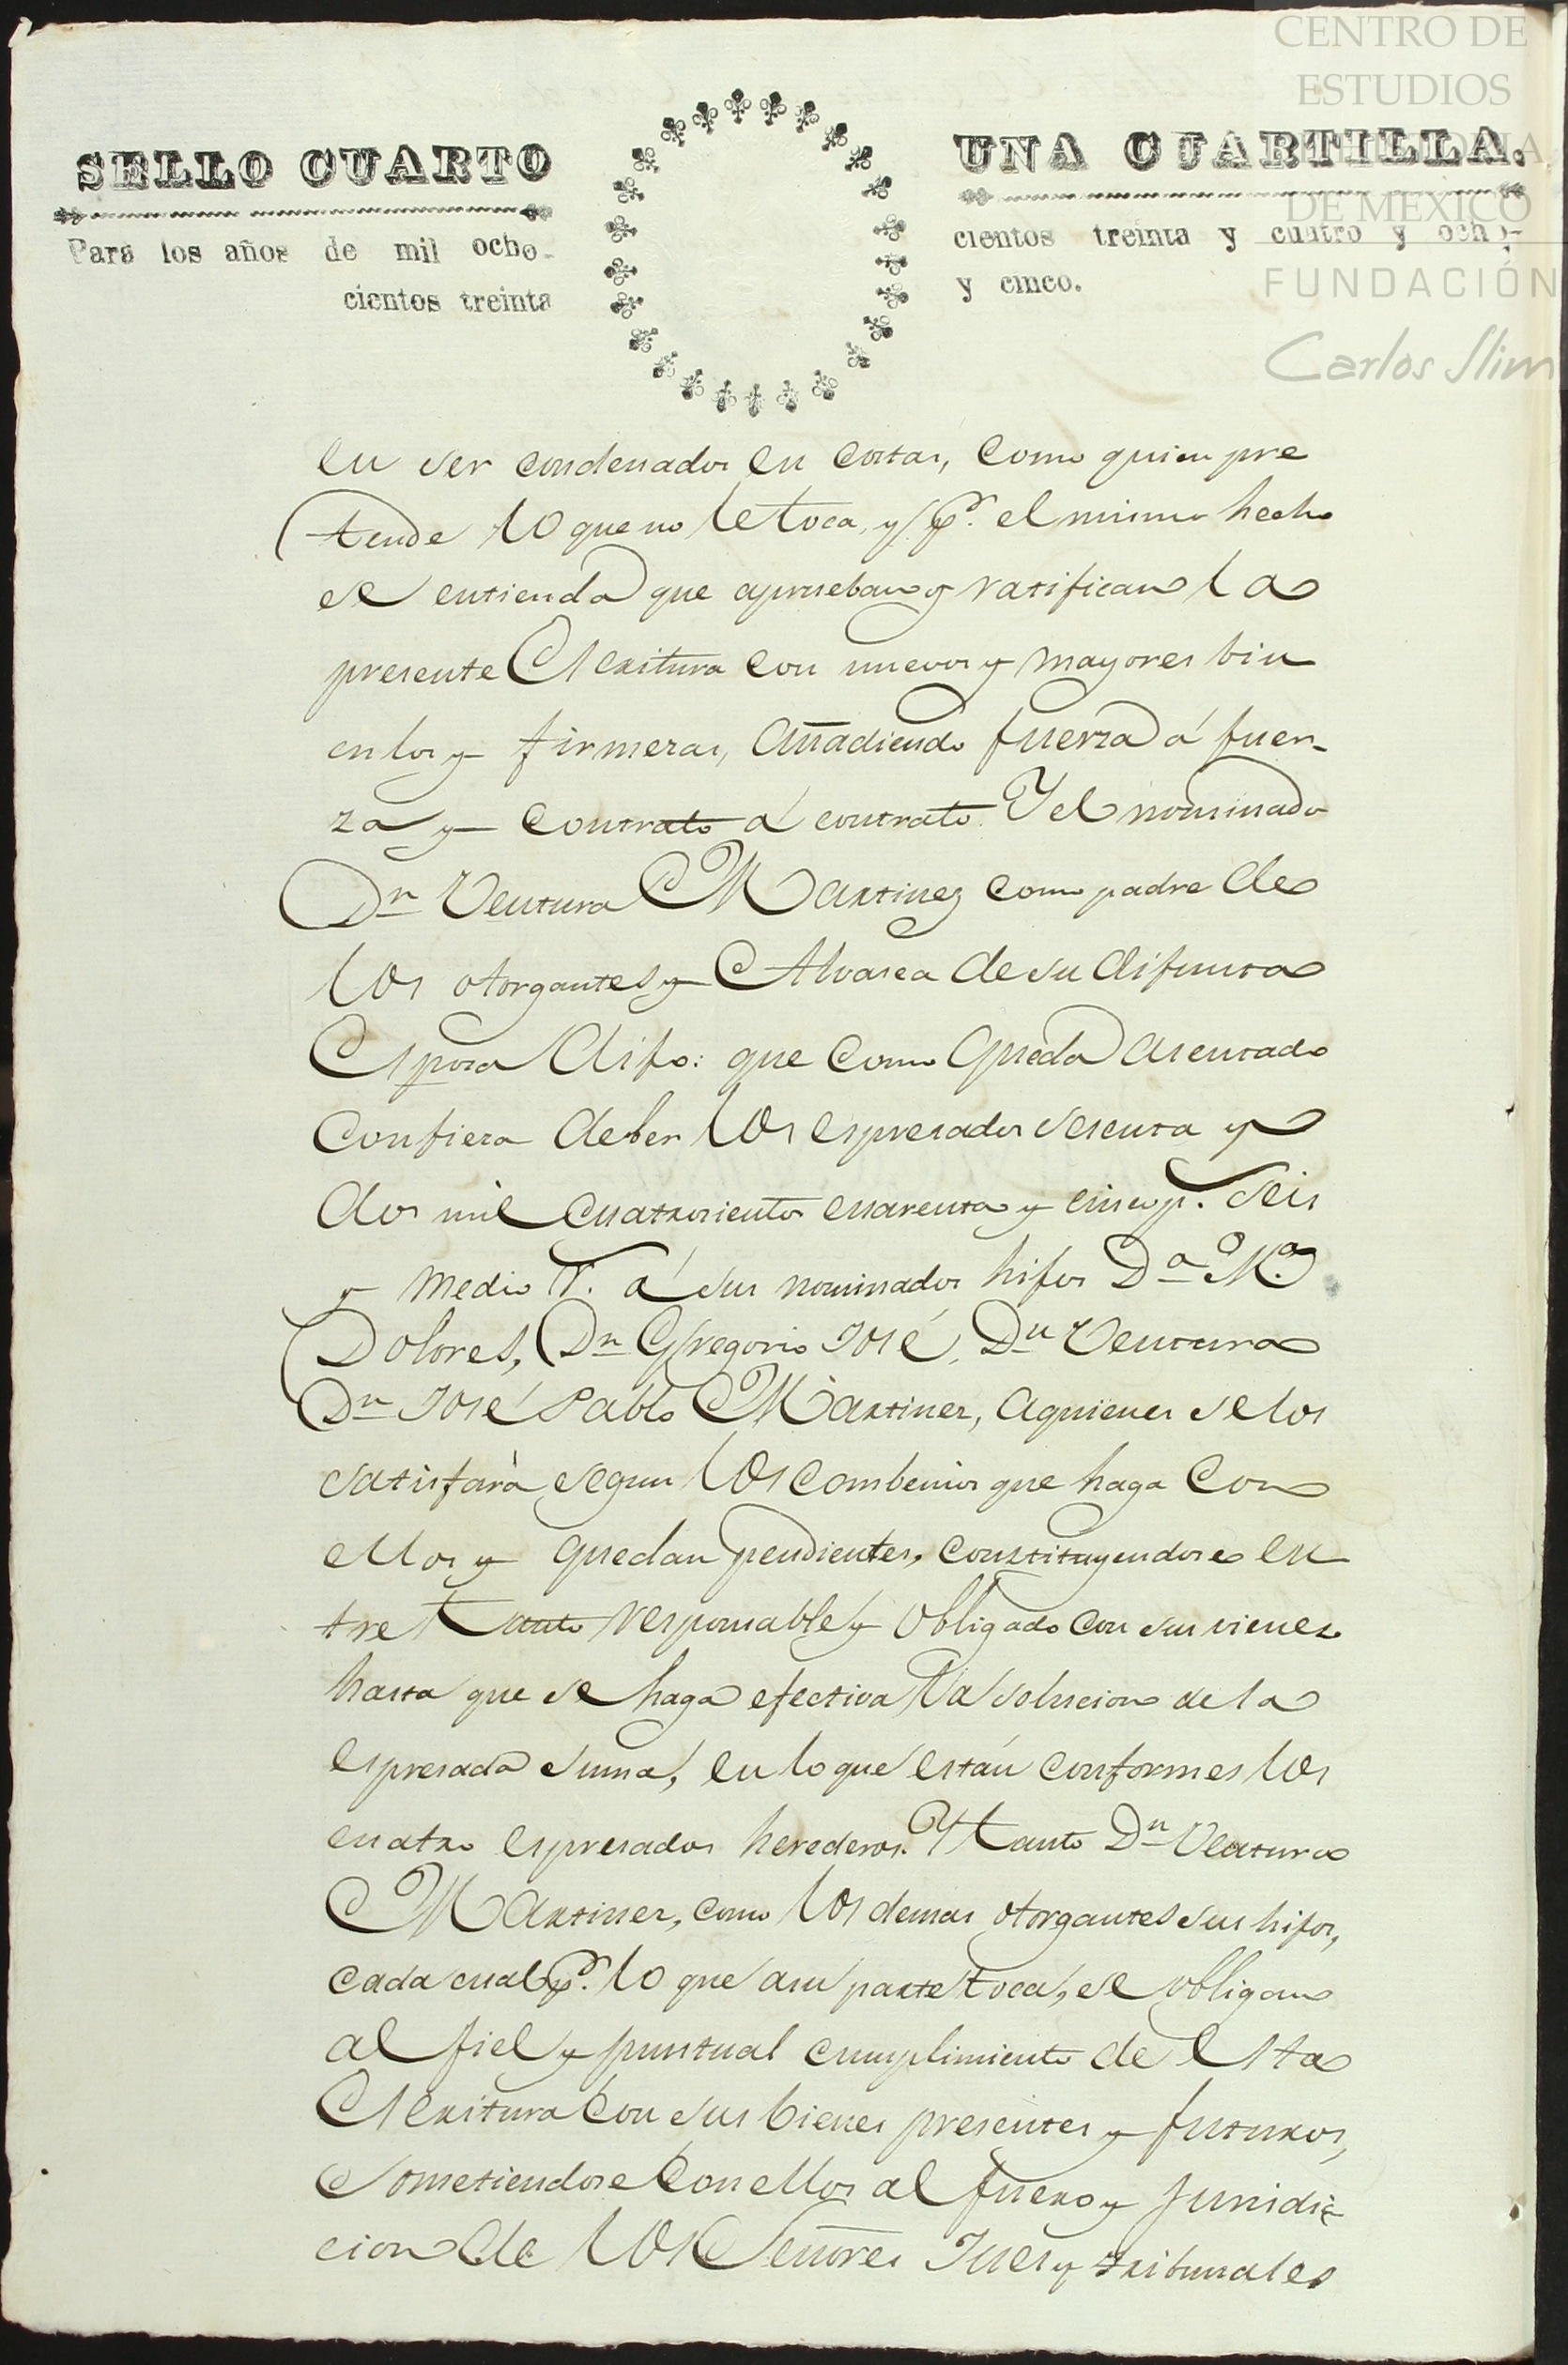 CENTRO DE
ESTUDIOS
DE MÉXICO
FUNDACIÓN
Carlos Slim
SELLO CUARTO
Para los años de mil ocho-
cientos treinta
UNA CUARTILLA.
cientos treinta y cuatro y ocho-
y cinco.
en ser condenados en costas, como quien pre
tende lo que no le toca, y pr. el mismo hecho
se entienda que aprueban y ratifican la
presente Escritura con nuevos y mayores bin
culos y firmezas, añadiendo fuerza á fuer-
za y contrato á contrato. Y el nominado
Dn Ventura Martinez como padre de
los otorgantes y Alvasea de su difunta
Esposa dijo: que como queda asentado
confiesa deber los espresados sesenta y
dos mil cuatrocientos cuarenta y cinco p. seis
y medio r. á sus nominados hijos Da Ma
Dolores, Dn Gregorio José, Dn Ventura
Dn José Pablo Martinez, aquienes se los
satisfará segun los combenios que haga con
ellos y quedan pendientes, constituyendose en
tre tanto responsable y obligado con sus vienes
hasta que se haga efectiva la solucion de la
espresada suma, en lo que están conformes los
cuatro espresados herederos. Y tanto Dn Ventura
Martinez, como los demas otorgantes sus hijos,
cada cual pr. lo que asu parte toca, se obligan
al fiel y puntual cumplimiento de esta
Escritura con sus bienes presentes y futuros,
sometiendose con ellos al fuero y juridic
cion de los Señores Jues y tribunales